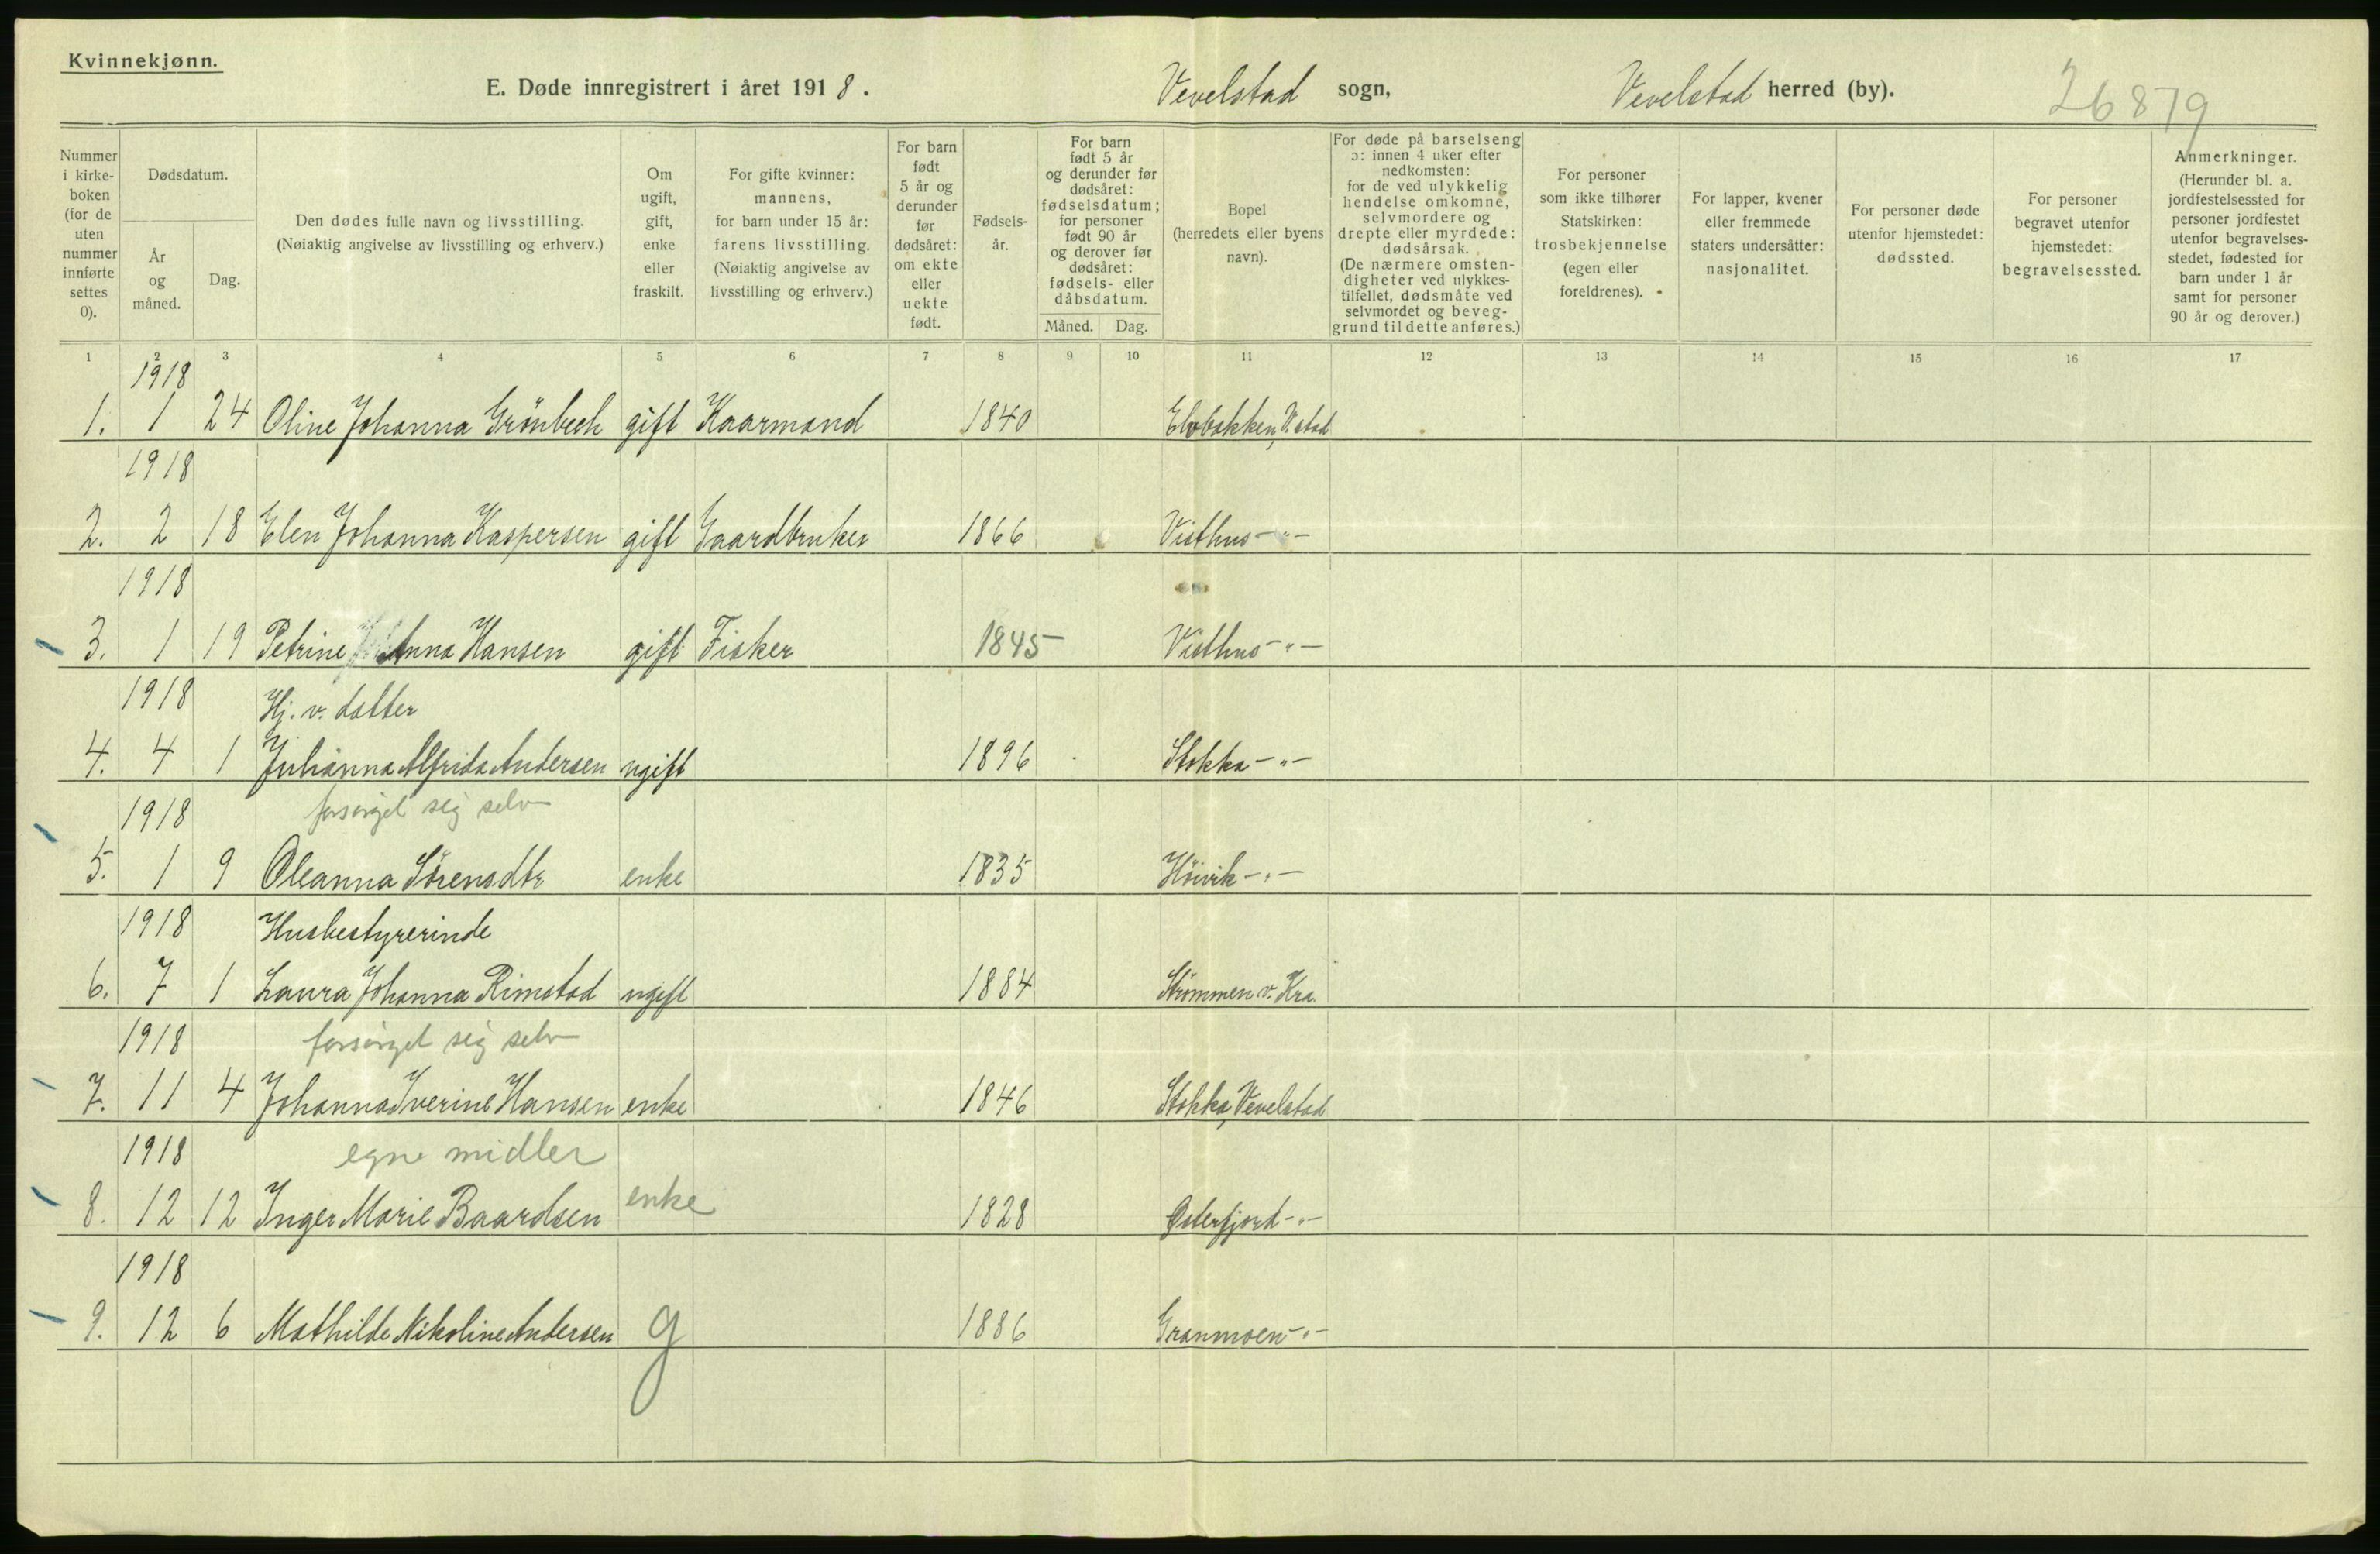 Kvinnekjønn.
E. Døde innregistrert i året 1918. Vevelstad sogn, Vevelstad herred (by). 26879
Nummer i kirke-boken (for de uten nummer innførte settes 0).
Dødsdatum.
År og måned.
Dag.
Den dødes fulle navn og livsstilling. (Nøiaktig angivelse av livsstilling og erhverv.)
Om ugift, gift, enke eller fraskilt.
For gifte kvinner: mannens, for barn under 15 år: farens livsstilling. (Nøiaktig angivelse av livsstilling og erhverv.)
For barn født 5 år og derunder før dødsåret: om ekte eller uekte født.
Fødsels-år.
For barn født 5 år og derunder før dødsåret: fødselsdatum; for personer født 90 år og derover før dødsåret: fødsels- eller dåbsdatum.
Måned. Dag.
Bopel (herredets eller byens navn).
For døde på barselseng ɔ: innen 4 uker efter nedkomsten: for de ved ulykkelig hendelse omkomne, selvmordere og drepte eller myrdede: dødsårsak. (De nærmere omsten-digheter ved ulykkes-tilfellet, dødsmåte ved selvmordet og beveg-grund til dette anføres.)
For personer som ikke tilhører Statskirken: trosbekjennelse (egen eller foreldrenes).
For lapper, kvener eller fremmede staters undersåtter: nasjonalitet.
For personer døde utenfor hjemstedet: dødssted.
For personer begravet utenfor hjemstedet: begravelsessted.
Anmerkninger. (Herunder bl. a. jordfestelsessted for personer jordfestet utenfor begravelses-stedet, fødested for barn under 1 år samt for personer 90 år og derover.)
1 2 3 4 5 6 7 8 9 10 11 12 13 14 15 16 17
1918
1. 1 24 Oline Johanna Grönbech gift Kaarmand 1840 Elvbakken, V.stad
1918
2. 2 18 Elen Johanna Kaspersen gift Gaardbruker 1866 Visthus -"-
1918
3. 1 19 Petrine Anna Hansen gift Fisker 1845 Visthus -"-
1918 Hj. v. datter
4. 4 1 Julianna Alfrida Andersen ugift 1896 Stokka -"-
1918 forsørget sig selv
5. 1 9 Oleanna Sörensdtr enke 1835 Höivik -"-
1918 Husbestyrerinde
6. 7 1 Laura Johanna Rimstad ugift 1884 Strømmen v. Kra.
1918 forsørget sig selv
7. 11 4 Johanna Iverine Hansen enke 1846 Stokka, Vevelstad
1918 egne midler
8. 12 12 Inger Marie Baardsen enke 1828 Østerfjord -"-
1918
9. 12 6 Mathilde Nikoline Andersen g 1886 Granmoen -"-